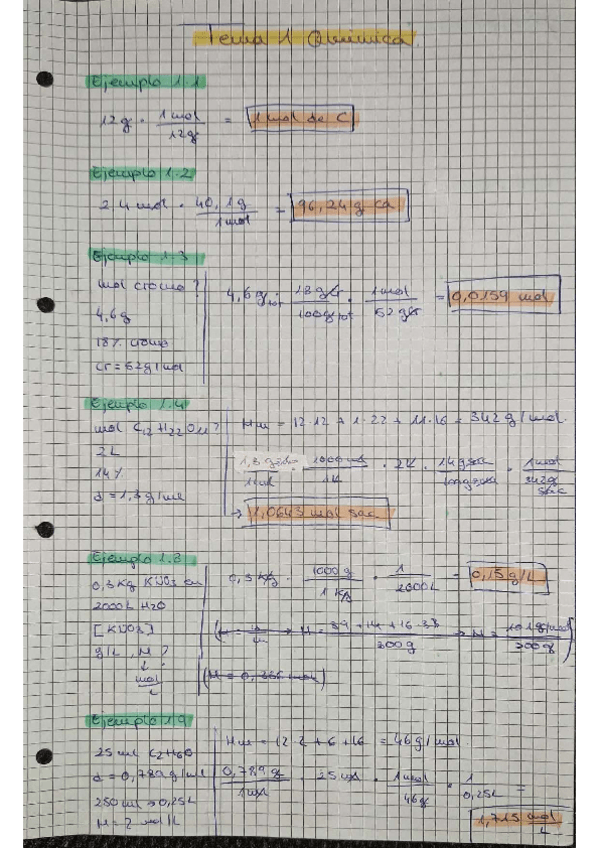 Tema 1 Química
Ejemplo 1.1
12g · 1 mol / 12g = 1 mol de C
Ejemplo 1.2
2,4 mol · 40,1g / 1 mol = 96,24 g Ca
Ejemplo 1.3
mol cromo?
4,6g
18% cromo
Cr = 52g/mol
4,6g tot · 18gCr / 100g tot · 1 mol / 52 gCr = 0,0159 mol
Ejemplo 1.4
mol C12 H22 O11?
2L
14%
d = 1,3 g/ml
Mm = 12·12 + 1·22 + 11·16 = 342 g/mol.
1,3 g / 1 ml · 1000 ml / 1L · 2L · 14g sac / 100g · 1 mol / 342g sac
→ 1,0643 mol sac
Ejemplo 1.8
0,3 Kg KNO3 en
2000L H2O
[KNO3]
g/L, M?
mol / L
0,3 Kg · 1000g / 1 Kg · 1 / 2000L = 0,15 g/L
Ejemplo 1.9
25 ml C2H6O
d = 0,789 g/ml
250 ml → 0,25L
M = ? mol/L
Mm = 12·2 + 6 + 16 = 46g/mol.
0,789 g / 1 ml · 25 ml · 1 mol / 46g · 1 / 0,25L =
1,715 mol / L